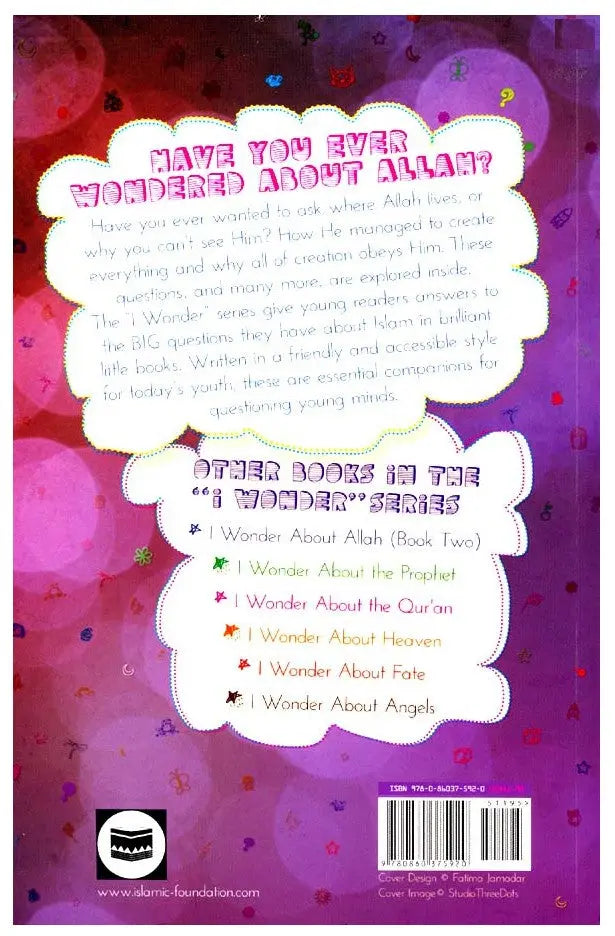 HAVE YOU EVER
WONDERED ABOUT ALLAH?
Have you ever wanted to ask where Allah lives, or
why you can't see Him? How He managed to create
everything and why all of creation obeys Him. These
questions, and many more, are explored inside.
The "I Wonder" series give young readers answers to
the BIG questions they have about Islam in brilliant
little books. Written in a friendly and accessible style
for today's youth, these are essential companions for
questioning young minds.
OTHER BOOKS IN THE
"I WONDER" SERIES
I Wonder About Allah (Book Two)
I Wonder About the Prophet
I Wonder About the Qur'an
I Wonder About Heaven
I Wonder About Fate
I Wonder About Angels
ISBN 978-0-86037-592-0
51195>
9 780860 375920
Cover Design © Fatima Jamadar
Cover Image © StudioThreeDots
www.islamic-foundation.com